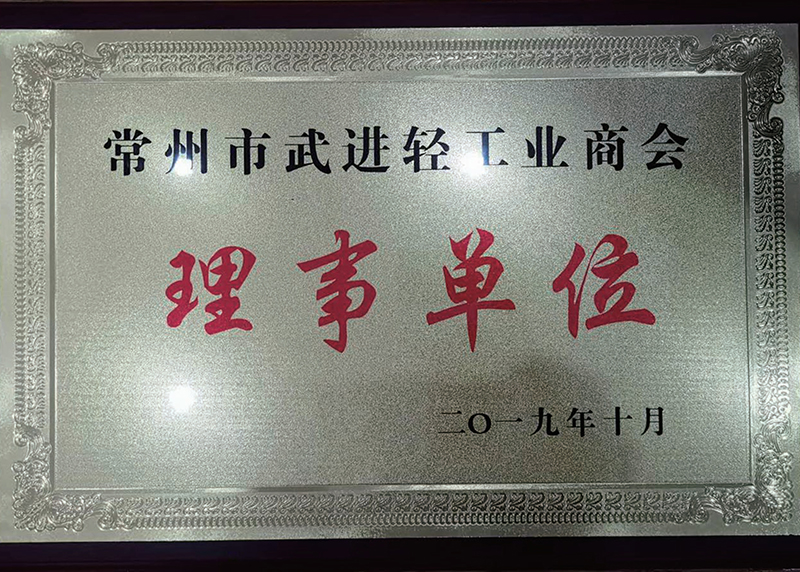 常州市武进轻工业商会
理事单位
二〇一九年十月